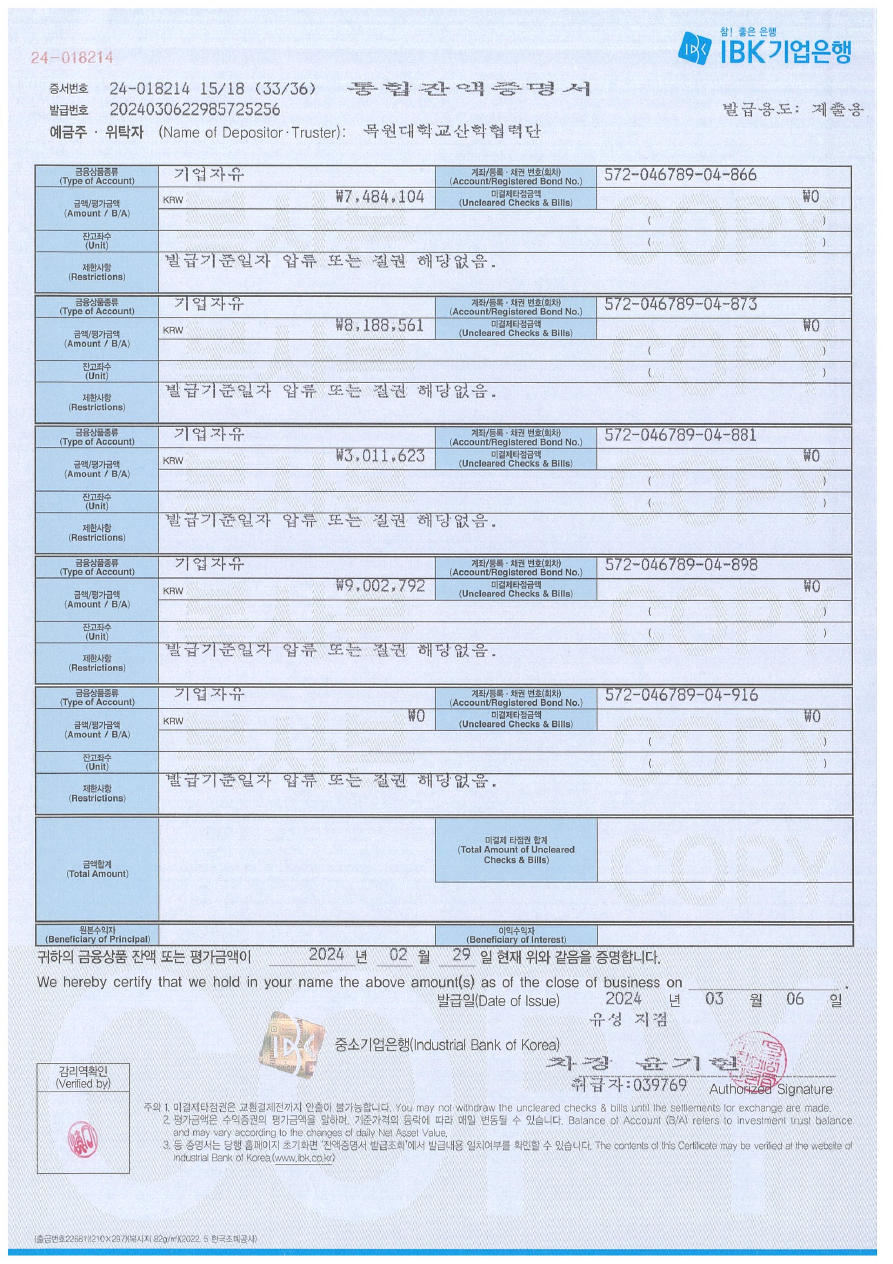 24-018214
참! 좋은 은행
IBK기업은행
증서번호 24-018214 15/18 (33/36) 통합잔액증명서
발급번호 2024030622985725256 발급용도: 제출용
예금주·위탁자 (Name of Depositor·Truster): 목원대학교산학협력단
금융상품종류 (Type of Account) 기업자유 계좌/등록·채권 번호(회차) (Account/Registered Bond No.) 572-046789-04-866
금액/평가금액 (Amount / B/A) KRW ₩7,484,104 미결제타점금액 (Uncleared Checks & Bills) ₩0
( )
잔고좌수 (Unit) ( )
제한사항 (Restrictions) 발급기준일자 압류 또는 질권 해당없음.
금융상품종류 (Type of Account) 기업자유 계좌/등록·채권 번호(회차) (Account/Registered Bond No.) 572-046789-04-873
금액/평가금액 (Amount / B/A) KRW ₩8,188,561 미결제타점금액 (Uncleared Checks & Bills) ₩0
( )
잔고좌수 (Unit) ( )
제한사항 (Restrictions) 발급기준일자 압류 또는 질권 해당없음.
금융상품종류 (Type of Account) 기업자유 계좌/등록·채권 번호(회차) (Account/Registered Bond No.) 572-046789-04-881
금액/평가금액 (Amount / B/A) KRW ₩3,011,623 미결제타점금액 (Uncleared Checks & Bills) ₩0
( )
잔고좌수 (Unit) ( )
제한사항 (Restrictions) 발급기준일자 압류 또는 질권 해당없음.
금융상품종류 (Type of Account) 기업자유 계좌/등록·채권 번호(회차) (Account/Registered Bond No.) 572-046789-04-898
금액/평가금액 (Amount / B/A) KRW ₩9,002,792 미결제타점금액 (Uncleared Checks & Bills) ₩0
( )
잔고좌수 (Unit) ( )
제한사항 (Restrictions) 발급기준일자 압류 또는 질권 해당없음.
금융상품종류 (Type of Account) 기업자유 계좌/등록·채권 번호(회차) (Account/Registered Bond No.) 572-046789-04-916
금액/평가금액 (Amount / B/A) KRW ₩0 미결제타점금액 (Uncleared Checks & Bills) ₩0
( )
잔고좌수 (Unit) ( )
제한사항 (Restrictions) 발급기준일자 압류 또는 질권 해당없음.
금액합계 (Total Amount) 미결제 타점권 합계 (Total Amount of Uncleared Checks & Bills)
COPY
원본수익자 (Beneficiary of Principal) 이익수익자 (Beneficiary of Interest)
귀하의 금융상품 잔액 또는 평가금액이 2024 년 02 월 29 일 현재 위와 같음을 증명합니다.
We hereby certify that we hold in your name the above amount(s) as of the close of business on .
발급일(Date of Issue) 2024 년 03 월 06 일
유성 지점
IBK 중소기업은행(Industrial Bank of Korea)
차장 윤기현
취급자:039769 Authorized Signature
감리역확인
(Verified by)
주의 1. 미결제타점권은 교환결제전까지 인출이 불가능합니다. You may not withdraw the uncleared checks & bills until the settlements for exchange are made.
2. 평가금액은 수익증권의 평가금액을 말하며, 기준가격의 등락에 따라 매일 변동될 수 있습니다. Balance of Account (B/A) refers to investment trust balance
and may vary according to the changes of daily Net Asset Value.
3. 동 증명서는 당행 홈페이지 초기화면 '잔액증명서 발급조회'에서 발급내용 일치여부를 확인할 수 있습니다. The contents of this Certificate may be verified at the website of
Industrial Bank of Korea.(www.ibk.co.kr)
(출급번호22681)(210×297)(복사지 82g/㎡)(2022. 5 한국조폐공사)